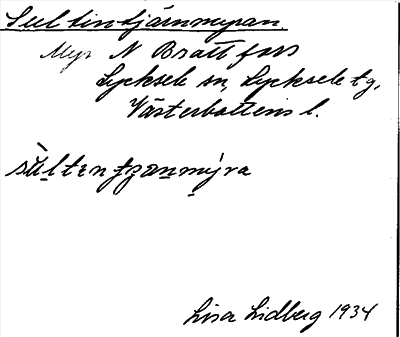 Sultintjärnmyran
Myr N Brattfors
Lycksele sn, Lycksele tg,
Västerbottens l.
sùltentjzanmýra
Lisa Lidberg 1934